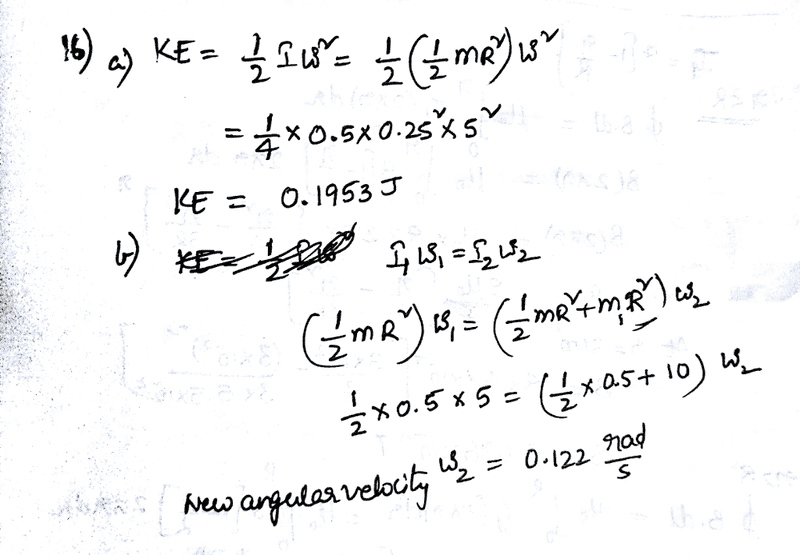 16) a) KE = 1/2 I ω² = 1/2 (1/2 mR²) ω²
= 1/4 × 0.5 × 0.25² × 5²
KE = 0.1953 J
b) I₁ ω₁ = I₂ ω₂
(1/2 mR²) ω₁ = (1/2 mR² + m₁R²) ω₂
1/2 × 0.5 × 5 = (1/2 × 0.5 + 10) ω₂
New angular velocity ω₂ = 0.122 rad/s